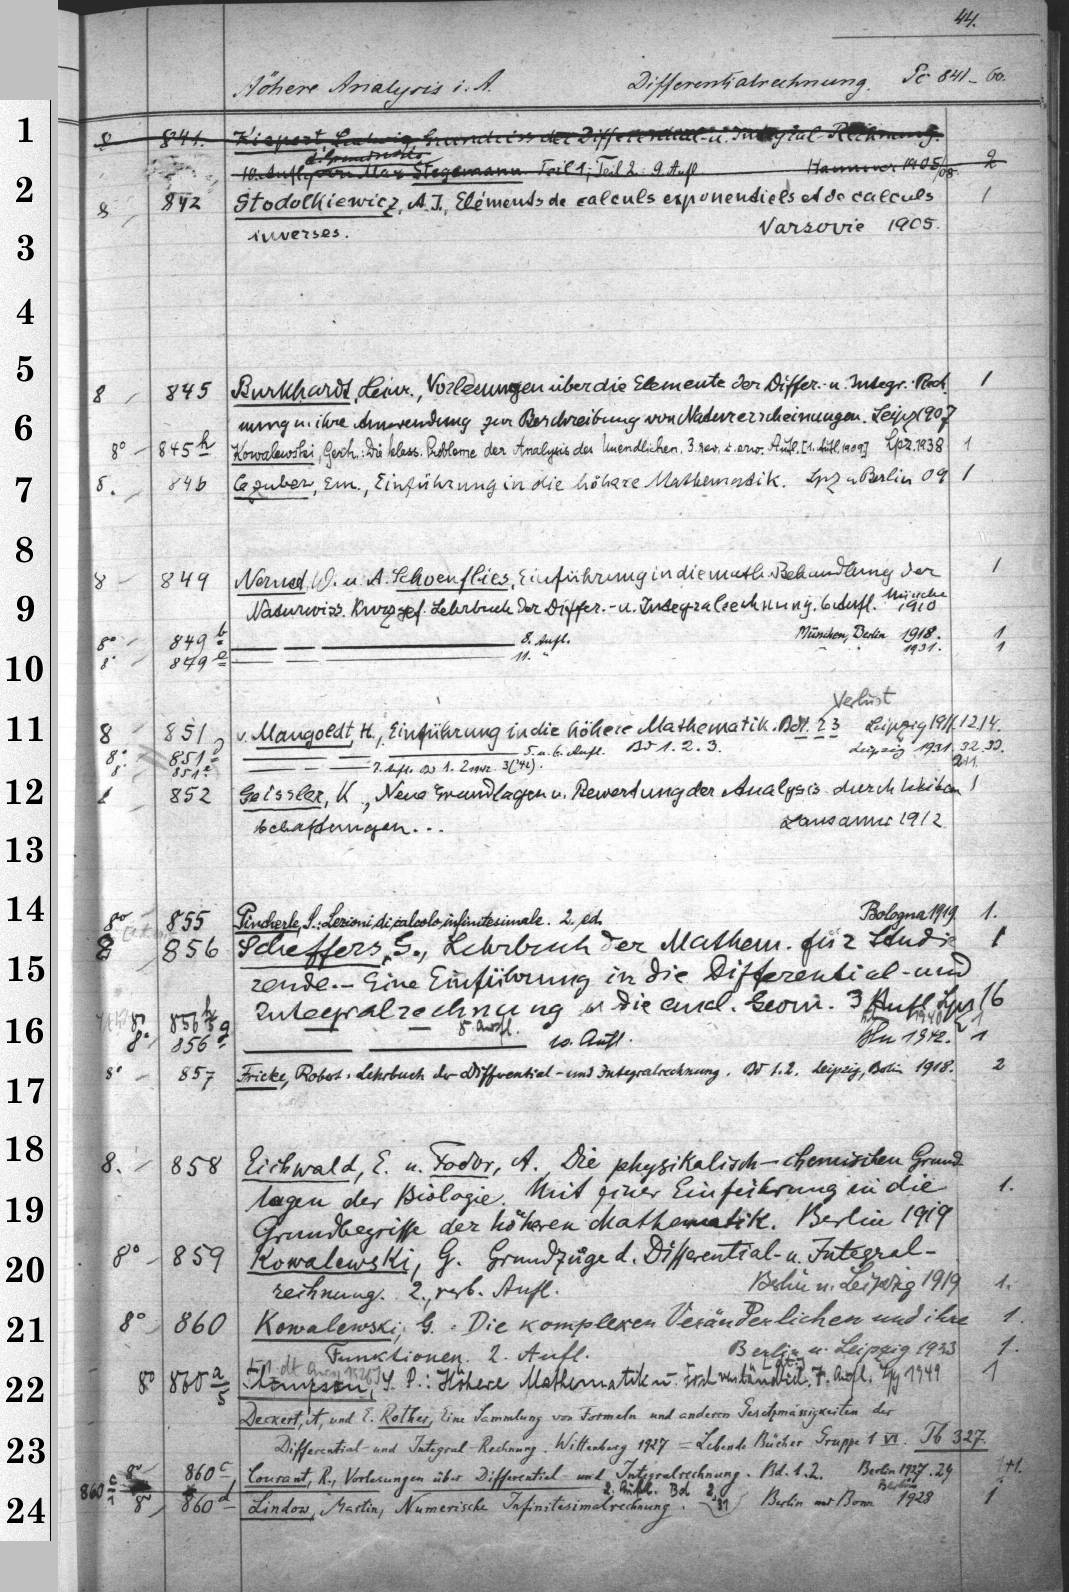 44.
Höhere Analysis i. A. Differentialrechnung. Pc 841-60.
1
8 841. Kiepert, Ludwig, Grundriss der Differential- u. Integral-Rechnung.
10. Aufl. von Max Stegemann Teil 1; Teil 2. 9 Aufl Hannover 1905/08 2
2
8 842 Stodolkiewicz, A. J., Eléments de calculs exponentiels et de calculs 1
inverses. Varsovie 1905.
3
4
5
8 845 Burkhardt, Heinr., Vorlesungen über die Elemente der Differ.- u. Integr. Rech 1
6
nung u. ihre Anwendung zur Beschreibung von Naturerscheinungen. Leipz 1907
8° 845 h Kowalewski, Gerh.: Die klass. Probleme der Analysis des Unendlichen. 3. rev. u. erw. Aufl. [1. Aufl. 1909] Lpz. 1938 1
7
8. 846 Czuber, Em., Einführung in die höhere Mathematik. Lpz u Berlin 09 1
8
8 849 Nernst, W. u. A. Schoenflies, Einführung in die math. Behandlung der 1
9
Naturwiss. Kurzgef. Lehrbuch der Differ.- u. Integralrechnung. 6. Aufl. München 1910
8° 849 b 8. Aufl. München, Berlin 1918. 1
10
8° 849 e 11. " " " 1931. 1
Verlust
11
8 851 v. Mangoldt, H., Einführung in die höhere Mathematik. Bd 1. 2 3 Leipzig 1911. 12 14.
8° 851 5. u. 6. Aufl. Bd 1. 2. 3. Leipzig 1931. 32. 33.
8° 851 7. Aufl. Bd 1. 2 3 ('42).
12
852 Geissler, K., Neue Grundlagen u. Bewertung der Analysis durch 1
behaftungen... Lausanne 1912
13
14
8° 855 Pincherle, S.: Lezioni di calcolo infinitesimale. 2. ed. Bologna 1919 1.
8 856 Scheffers, G., Lehrbuch der Mathem. für Studie 1
15
rende. – Eine Einführung in die Differential- und
Integralrechnung u die anal. Geom. 3 Aufl Lpz 16
16
8° 856 8. Aufl.
8° 856 g 10. Aufl. Bln 1942. 1
17
8° 857 Fricke, Robert. Lehrbuch der Differential- und Integralrechnung. Bd 1. 2. Leipzig, Berlin 1918. 2
18
8. 858 Eichwald, E. u. Fodor, A. Die physikalisch-chemischen Grund
lagen der Biologie. Mit einer Einführung in die 1.
19
Grundbegriffe der höheren Mathematik. Berlin 1919
20
8° 859 Kowalewski, G. Grundzüge d. Differential- u. Integral-
rechnung. 2., verb. Aufl. Berlin u. Leipzig 1919 1.
21
8° 860 Kowalewski, G. Die komplexen Veränderlichen und ihre 1.
Funktionen. 2. Aufl. Berlin u. Leipzig 1923 1.
22
8° 860 a Thompson, S. P.: Höhere Mathematik u. doch verständlich. 7. Aufl. Lpz 1949 1
Deckert, A, und E. Rother, Eine Sammlung von Formeln und anderen Gesetzmässigkeiten der
23
Differential- und Integral-Rechnung. Wittenberg 1927 = Lebende Bücher Gruppe 1 VI. Tb 327.
8° 860 c Courant, R., Vorlesungen über Differential- und Integralrechnung. Bd. 1. 2. Berlin 1927. 29 1+1.
2. Aufl. Bd 2, 31 Berlin
24
8° 860 d Lindow, Martin, Numerische Infinitesimalrechnung. Berlin und Bonn 1928 1